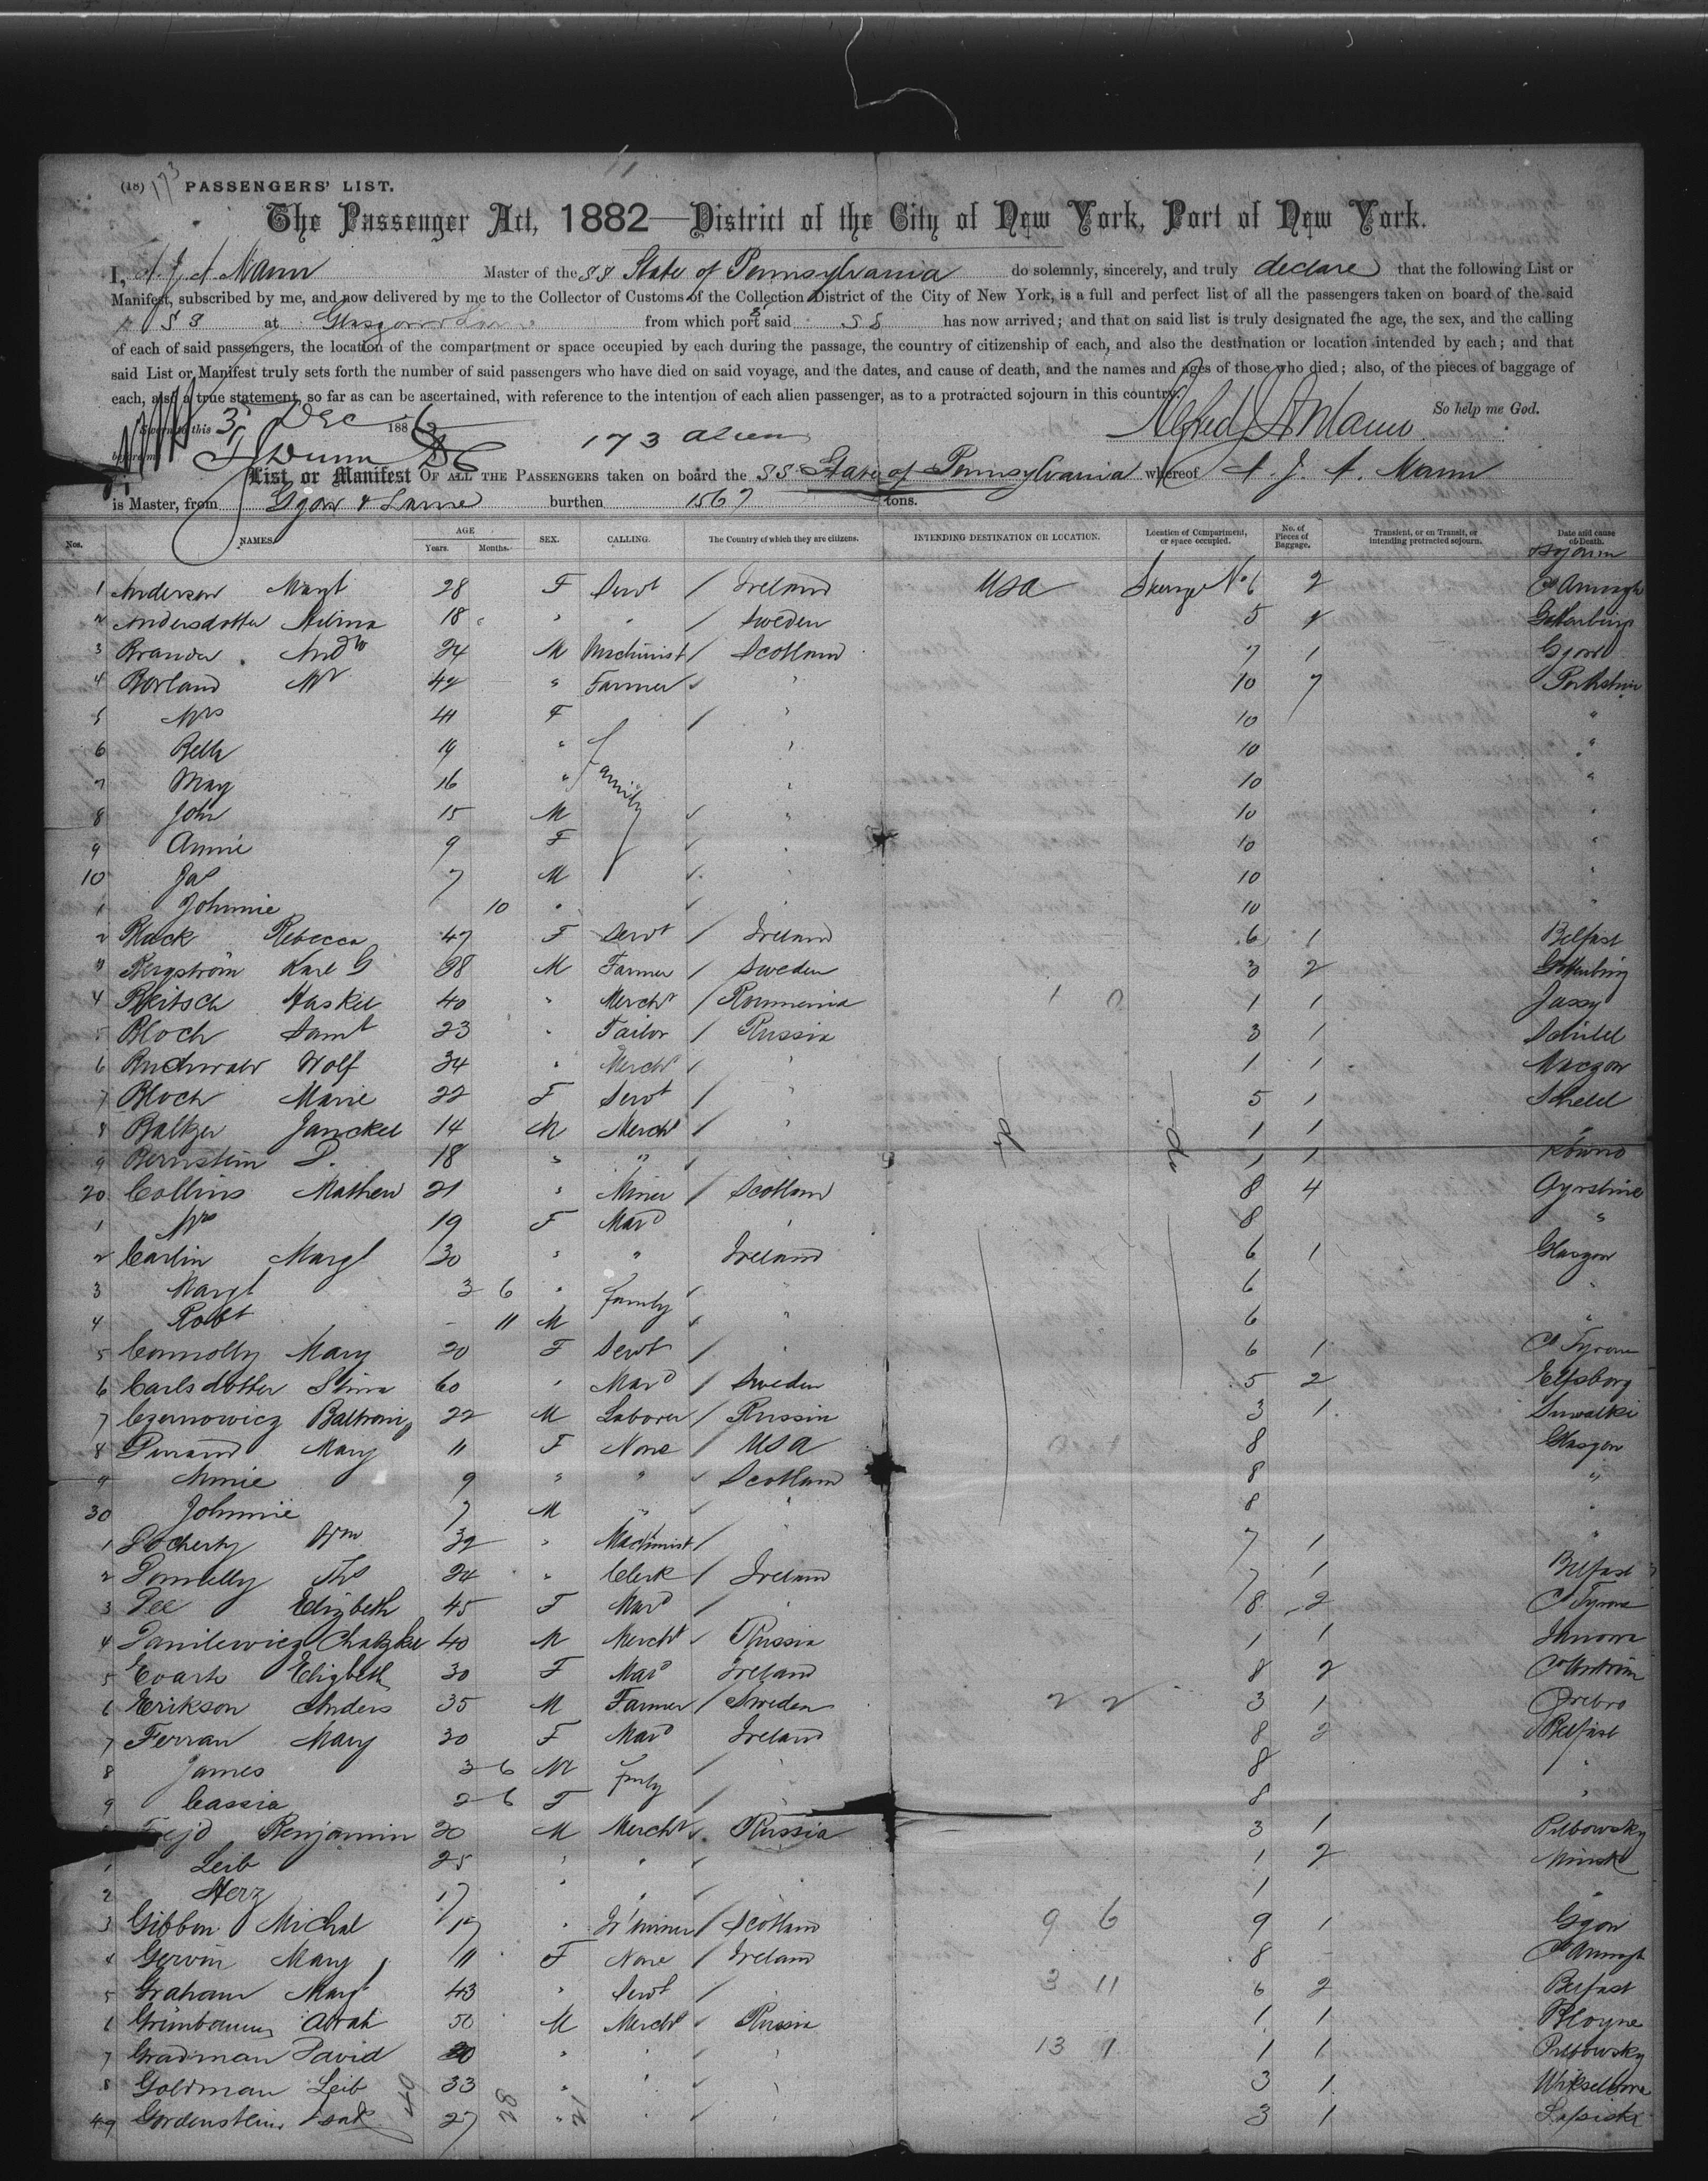 (18) 173 PASSENGERS' LIST. 11
The Passenger Act, 1882—District of the City of New York, Port of New York.
I, A. J. A. Mann Master of the SS State of Pennsylvania do solemnly, sincerely, and truly declare that the following List or
Manifest, subscribed by me, and now delivered by me to the Collector of Customs of the Collection District of the City of New York, is a full and perfect list of all the passengers taken on board of the said
SS at Glasgow & Larne from which port said SS has now arrived; and that on said list is truly designated the age, the sex, and the calling
of each of said passengers, the location of the compartment or space occupied by each during the passage, the country of citizenship of each, and also the destination or location intended by each; and that
said List or Manifest truly sets forth the number of said passengers who have died on said voyage, and the dates, and cause of death, and the names and ages of those who died; also, of the pieces of baggage of
each, also a true statement, so far as can be ascertained, with reference to the intention of each alien passenger, as to a protracted sojourn in this country.
So help me God.
Sworn to this 31 Dec 1886 Alfred J A Mann
before me 173 aliens
List or Manifest OF ALL THE PASSENGERS taken on board the SS State of Pennsylvania whereof A. J. A. Mann
is Master, from Ggow & Larne burthen 1567 tons.
Nos. NAMES. AGE Years. Months. SEX. CALLING. The Country of which they are citizens. INTENDING DESTINATION OR LOCATION. Location of Compartment, or space occupied. No. of Pieces of Baggage. Transient, or on Transit, or intending protracted sojourn. Date and cause of Death.
1 Anderson Margt 28 F Servt / Ireland USA Steerage No 6 2 Co Armagh
2 Andersdotter Milma 18 " " / Sweden 5 2 Gothenburg
3 Brander Andw 24 M Machinist / Scotland 7 1 Ggow
4 Borland Mr 42 " Farmer " 10 7 Perthshire
5 Mrs 41 F / " 10 "
6 Bella 19 " Family " 10 "
7 May 16 " " 10 "
8 John 15 M " 10 "
9 Annie 9 F " 10 "
10 Jas 7 M " 10 "
1 Johnnie 10 " " 10 "
2 Black Rebecca 47 F Servt / Ireland 6 1 Belfast
3 Bergström Karl G 28 M Farmer / Sweden 3 2 Gothenburg
4 Haskel 40 " Mercht / Roumenia 1 0 1 1 Jassy
5 Bloch Saml 23 " Tailor / Russia 3 1
6 Buchwald Wolf 34 " Mercht " 1 1
7 Bloch Marie 22 F Servt / " 5 1
8 Balkzer Janckel 14 M Mercht / " 1 1 "
9 Bernstein D. 18 " " " 1 1 Kowno
20 Collins Mathew 21 " Miner / Scotland 8 4 Ayrshire
1 Mrs 19 F Mard " 8 "
2 Carlin Margt 30 " " Ireland 6 1 Glasgow
3 Margt 3 6 " family " 6 "
4 Robt - 11 M " 6 "
5 Connolly Mary 20 F Servt / " 6 1 Co Tyrone
6 Carlsdotter Stina 60 " Mard / Sweden 5 2 Elfsborg
7 Czernowicz 22 M Laborer / Russia 3 1 Suwalki
8 Durand Mary 11 F None / USA 8 Glasgow
9 Annie 9 " " Scotland 8 "
30 Johnnie 7 M " " 8 "
1 Docherty Wm 32 " Machinist / 7 1 "
2 Donnelly Ths 24 " Clerk / Ireland 7 1 Belfast
3 Dee Elizbeth 45 F Mard / " 8 2 Co Tyrone
4 Danilewicz Chatzkel 40 M Mercht Russia 1 1 Janowa
5 Evarts Elizbeth 30 F Mard Ireland 8 2 Co Antrim
6 Erikson Anders 35 M Farmer / Sweden 2 2 3 1 Örebro
7 Ferran Mary 30 F Mard Ireland 8 2 Belfast
8 James 3 6 M fmly / " 8 "
9 Cassia 2 6 F / 8 "
Benjamin 30 M Mercht Russia 3 1 Pilbowsky
1 Leib 25 " " 1 2 Minsk
2 Herz 17 " " 1 "
3 Gibbon Michal 17 " / Scotland 9 6 9 1 Ggow
4 Gervin Mary 11 F None / Ireland 8 - Co Armagh
5 Graham Margt 43 " Servt / " 3 11 6 2 Belfast
6 Grünbaum Abrah 50 M Mercht Russia 1 1
7 Gradman David 30 " " " 13 1 1 1 Pilbowsky
8 Goldman Leib 33 " " " 3 1
49 Gordenstein Isak 27 " " " 3 1
40 28 21